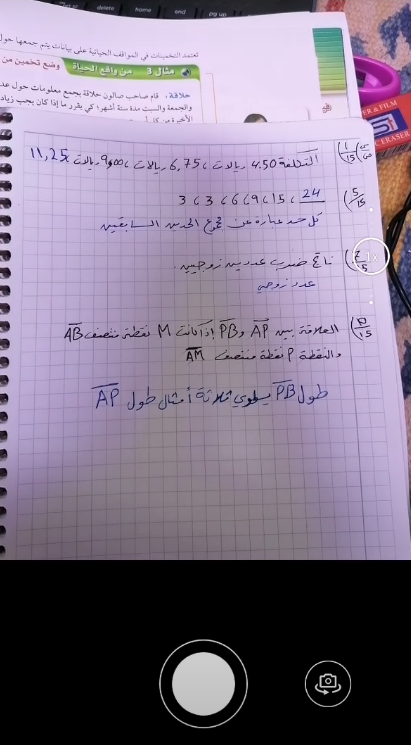 delete
home
end
pg up
تعتمد التخمينات في المواقف الحياتية على بيانات يتم جمعها حول
مثال 3 من واقع الحياة وضع تخمين من
حلاقة: قام صاحب صالون حلاقة بجمع معلومات حول عد
والجمعة والسبت مدة ستة أشهر؛ كي يقرر ما إذا كان يجب زياد
ER & FILM
ERASER
1/15 التكلفة 4.50 ريال، 6,75 ريال، 9,00 ريال، 11,25
5/15 3، 3، 6، 9، 15، 24
كل حد عبارة عن مجموع الحدين السابقين
ناتج ضرب عددين زوجيين
عدد زوجي
15 العلاقة بين AP و PB إذا كانت M نقطة منتصف AB
والنقطة P نقطة منتصف AM
طول PB يساوي ثلاثة أمثال طول AP